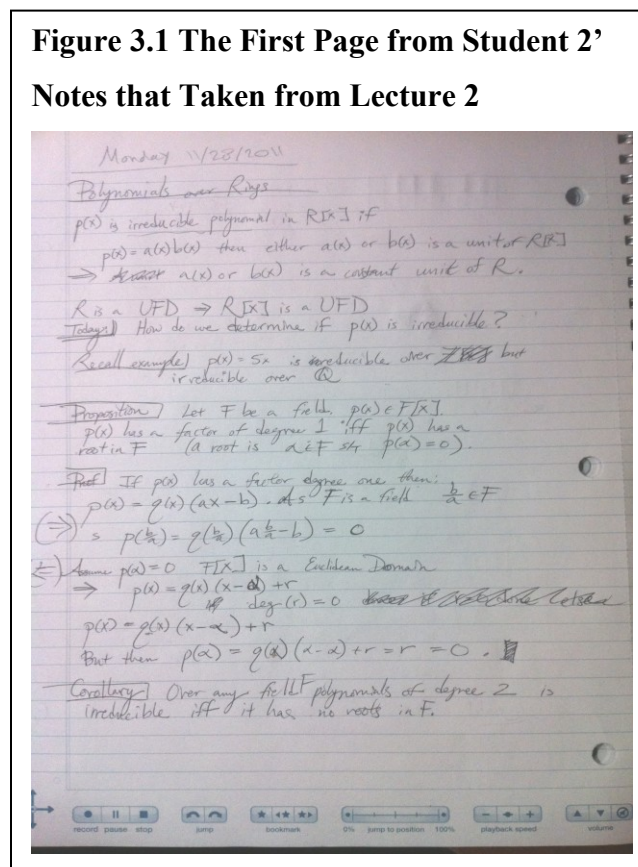 Figure 3.1 The First Page from Student 2’
Notes that Taken from Lecture 2
Monday 11/28/2011
Polynomials over Rings
p(x) is irreducible polynomial in R[x] if
p(x) = a(x)b(x) then either a(x) or b(x) is a unit of R[x]
⇒ a(x) or b(x) is a constant unit of R.
R is a UFD ⇒ R[x] is a UFD
Today) How do we determine if p(x) is irreducible?
Recall example) p(x) = 5x is reducible over but
irreducible over ℚ
Proposition) Let F be a field, p(x) ∈ F[x].
p(x) has a factor of degree 1 iff p(x) has a
root in F (a root is α ∈ F st p(α) = 0).
Proof) If p(x) has a factor degree one then:
p(x) = q(x)(ax-b). As F is a field b/a ∈ F
(⇒) s p(b/a) = q(b/a)(a b/a - b) = 0
⇐) Assume p(α) = 0 F[x] is a Euclidean Domain
⇒ p(x) = q(x)(x-α) + r
deg(r) = 0
p(x) = q(x)(x-α) + r
But then p(α) = q(α)(α-α) + r = r = 0.
Corollary) Over any field F polynomials of degree 2 is
irreducible iff it has no roots in F.
record pause stop jump bookmark 0% jump to position 100% playback speed volume